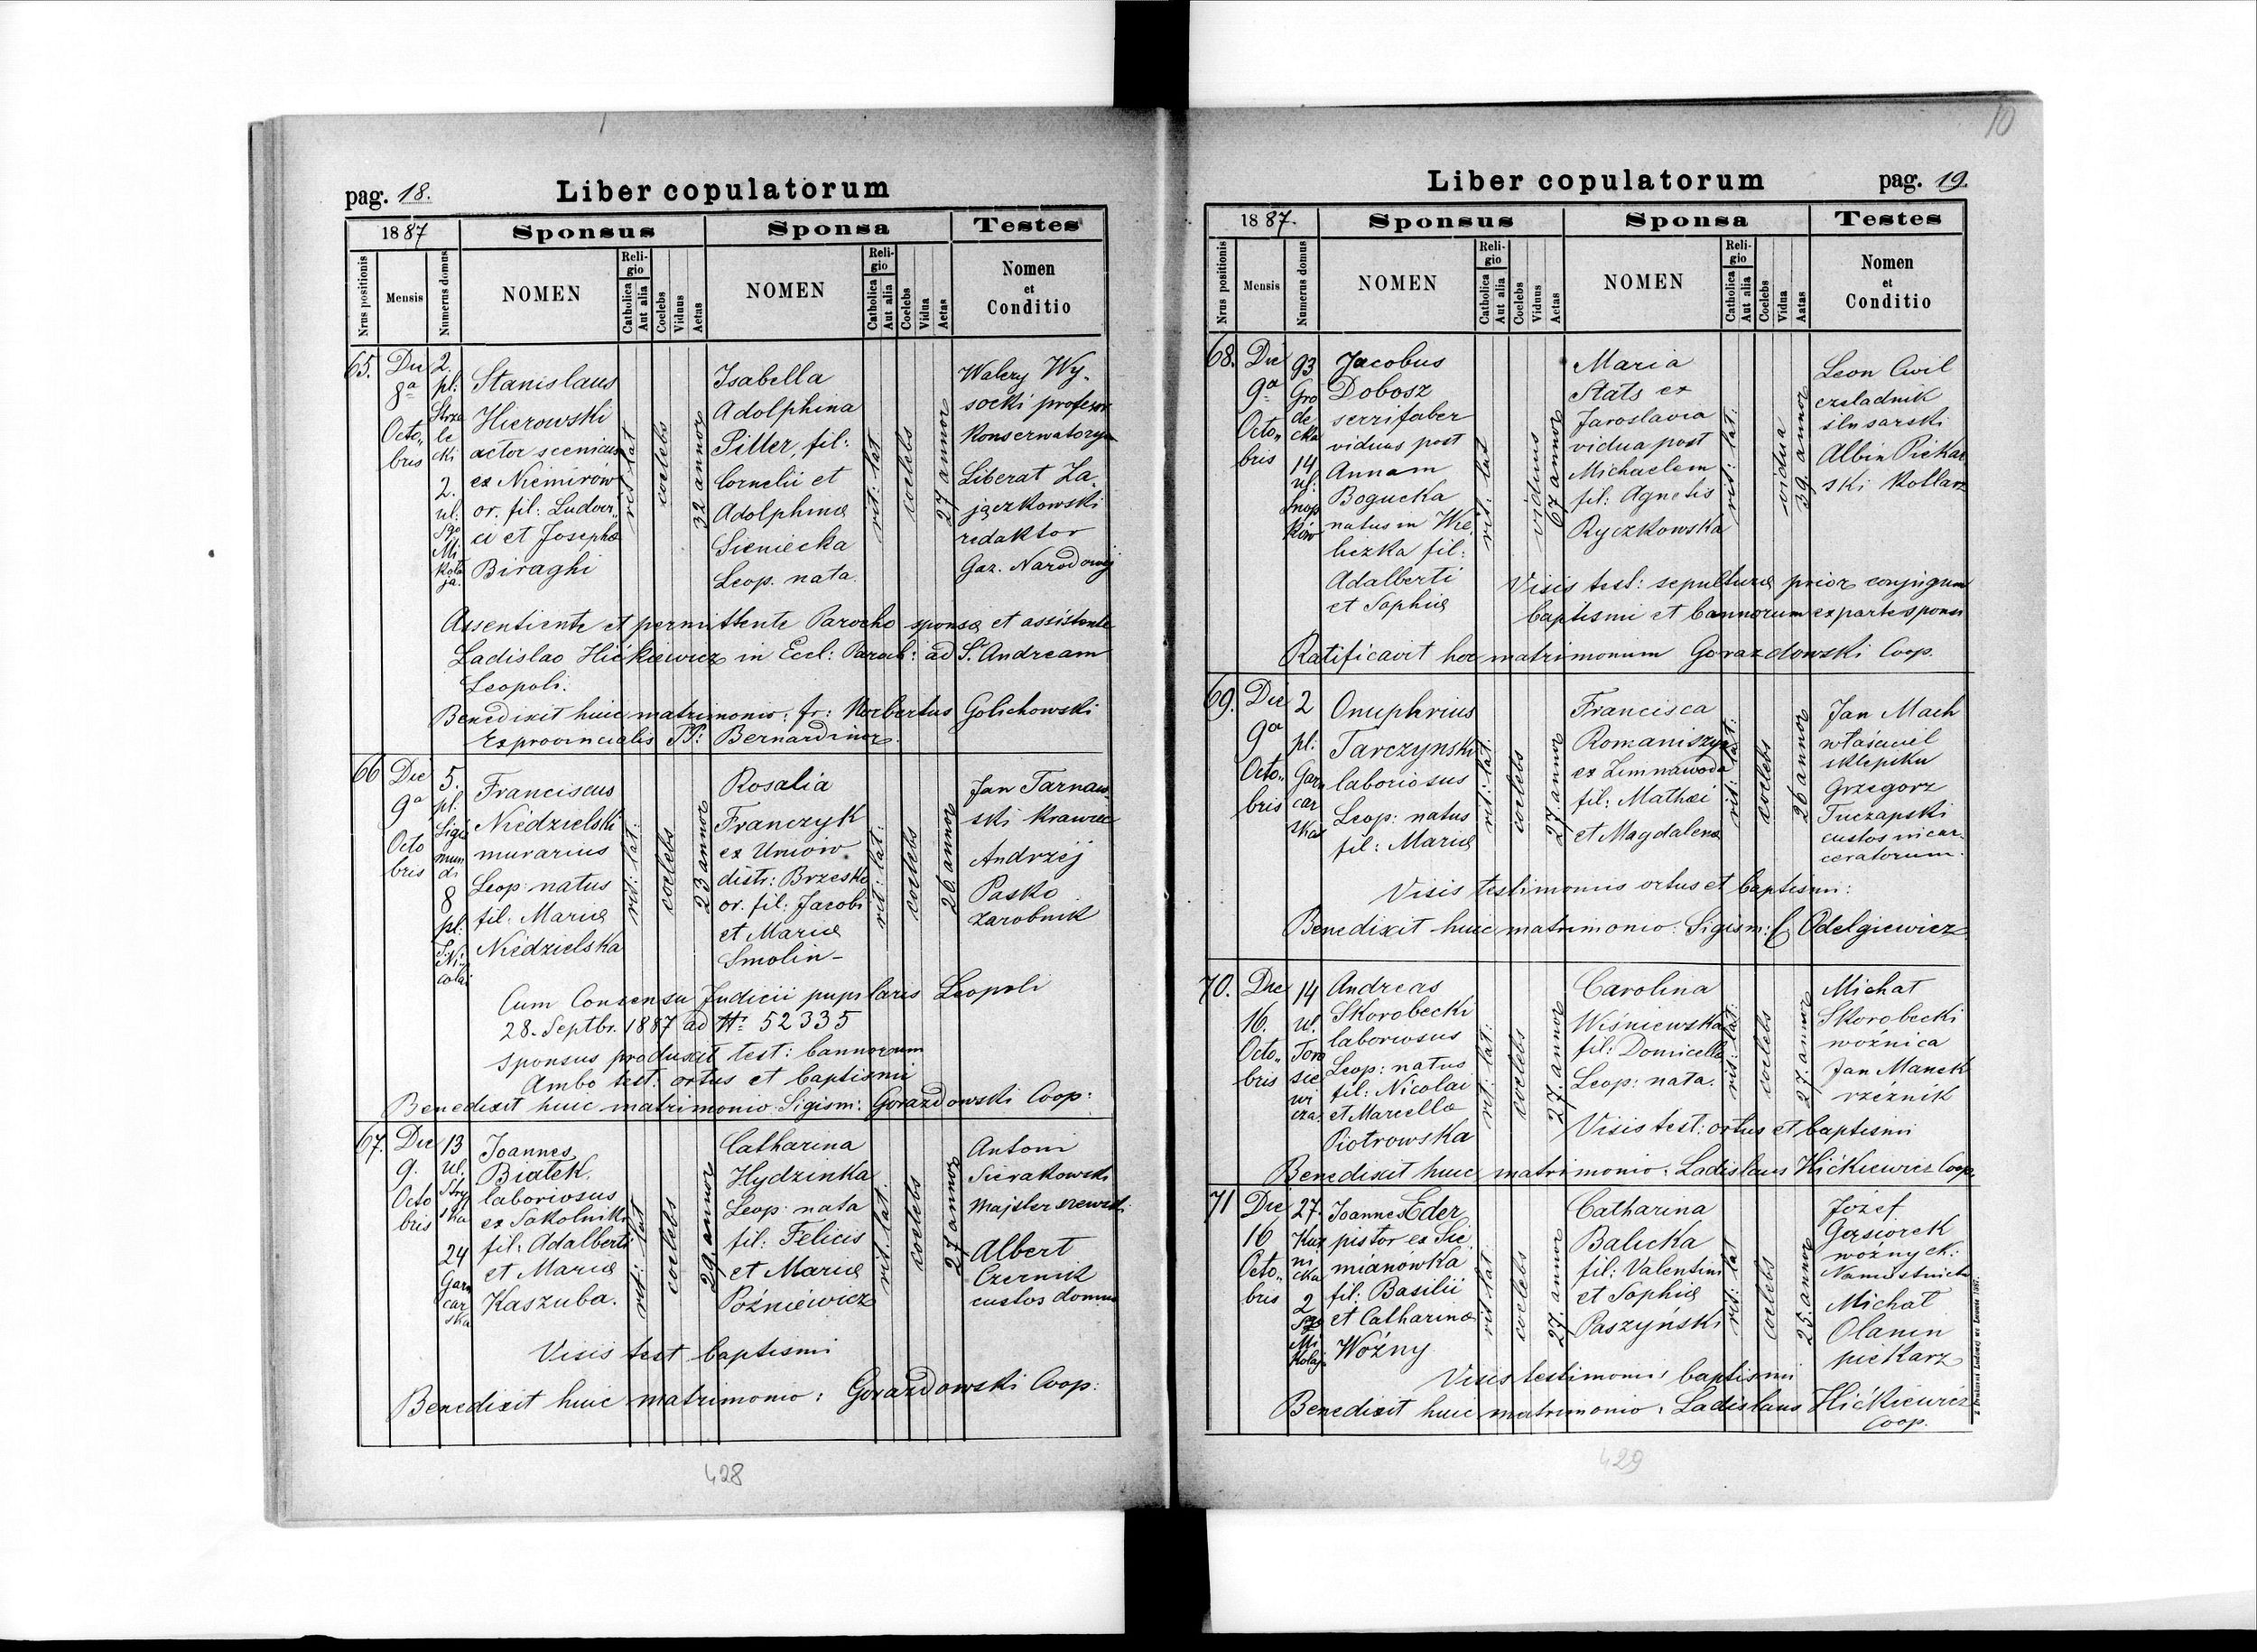 pag. 18.
Liber copulatorum
1887
Sponsus
Sponsa
Testes
Nrus positionis
Mensis
Numerus domus
NOMEN
Religio
Catholica
Aut alia
Coelebs
Viduus
Aetas
NOMEN
Religio
Catholica
Aut alia
Coelebs
Vidua
Aetas
Nomen
et
Conditio
65.
Die
8a
Octo„
bris
2.
pl:
Strze
le
cki
2.
ul:
Sgo
Mi
koła
ja.
Stanislaus
Hierowski
actor scenicus
ex Niemirów
or. fil: Ludovi„
ci et Josephæ
Biraghi
rit: lat
coelebs
32 annor
Isabella
Adolphina
Pitter, fil:
Cornelii et
Adolphinæ
Sieniecka
Leop. nata.
rit: lat
coelebs
27 annor
Walery Wy„
socki profesor
Konserwatoryu
Liberat Za„
jączkowski
redaktor
Gaz. Narodowéj
Assentiente et permittente Parocho sponsæ et assistente
Ladislao Hićkiewicz in Eccl: Paroch: ad S. Andream
Leopoli.
Benedixit huic matrimonio: fr: Norbertus Golichowski
Exprovincialis PP: Bernardinor.
66
Die
9a
Octo
bris
5.
pl.
Sigis
mun
di
8
pl:
S. Ni„
colai
Franciscus
Niedzielski
murarius
Leop: natus
fil: Mariæ
Niedzielska
rit: lat:
coelebs
23 annor
Rosalia
Franczyk
ex Uniów
distr: Brzesko
or. fil: Jacobi
et Mariæ
Smolin–
rit: lat:
coelebs
26 annor
Jan Tarnaw„
ski krawiec
Andrzéj
Pasko
zarobnik
Cum Consensu Judicii pupilaris Leopoli
28. Septbr. 1887 ad Nr. 52335
Sponsus produxit test: bannorum
Ambo test: ortus et baptismi
Benedixit huic matrimonio Sigism: Gorazdowski Coop:
67.
Die
9.
Octo
bris
13
ul.
Stry
ska
24
Garn
car
ska
Joannes
Białek,
laboriosus
ex Sokolniki
fil: Adalberti
et Mariæ
Kaszuba.
rit: lat
coelebs
29. annor
Catharina
Hydzinka
Leop: nata
fil: Felicis
et Mariæ
Poźniewicz
rit: lat.
coelebs
27 annor
Antoni
Sierakowski
majster szewski
Albert
Czernik
custos domus
Visis test baptismi
Benedixit huic matrimonio: Gorazdowski Coop:
428
10
Liber copulatorum
pag. 19.
1887.
Sponsus
Sponsa
Testes
Nrus positionis
Mensis
Numerus domus
NOMEN
Religio
Catholica
Aut alia
Coelebs
Viduus
Aetas
NOMEN
Religio
Catholica
Aut alia
Coelebs
Vidua
Aatas
Nomen
et
Conditio
68.
Die
9a
Octo„
bris
93
Gro
de
cka
14
ul:
Snop
ków
Jacobus
Dobosz
serrifaber
viduus post
Annam
Bogucka
natus in Wie
liczka fil:
Adalberti
et Sophiæ
rit: lat
viduus
67 annor
Maria
Stats ex
Jaroslavia
vidua post
Michaelem
fil: Agnetis
Ryczkowska
rit: lat:
vidua
39. annor
Leon Cwil
czeladnik
slusarski
Albin Piekar
ski kotlarz
Visis test: sepulturæ prior conjugum
baptismi et bannorum ex parte sponsi
Ratificavit hoc matrimonum Gorazdowski Coop.
69.
Die
9a
Octo„
bris
2
pl:
Garn
car
ska
Onuphrius
Tarczynski
laboriosus
Leop: natus
fil: Mariæ
rit: lat:
coelebs
27. annor
Francisca
Romaniszyn
ex Zimnawoda
fil: Mathæi
et Magdalenæ
rit: lat:
coelebs
26 annor
Jan Mach
właścicil
sklepiku
Grzegorz
Tuczapski
custos incar„
ceratorum.
Visis testimoniis ortus et baptismi:
Benedixit huic matrimonio: Sigism: C. Odelgiewicz
70.
Die
16.
Octo„
bris
14
ul.
Toro
sie
wi
cza.
Andreas
Skorobecki
laboriosus
Leop: natus
fil: Nicolai
et Marcellæ
Piotrowska
rit: lat:
coelebs
27. annor
Carolina
Wiśniewska
fil: Domicellæ
Leop: nata.
rit: lat:
coelebs
27. annor
Michał
Skorobecki
woźnica
Jan Manek
rzéźnik
Visis test: ortus et baptismi
Benedixit huic matrimonio: Ladislaus Hićkiewicz Coop.
71
Die
16
Octo„
bris
27.
Kaz
ni
cka
2
Sgo
Mi
kołaj
Joannes Eder
pistor ex Sie
mianówka
fil: Basilii
et Catharinæ
Woźny
rit lat
coelebs
27. annor
Catharina
Balicka
fil: Valentini
et Sophiæ
Paszyński
rit: lat
coelebs
25. annor
Józef
Gąsiorek
woźny ck:
Namiestnictw
Michał
Olanin
piekarz
Visis testimoniis baptismi
Benedixit huic matrimonio: Ladislaus Hićkiewicz
Coop.
Z Drukarni Ludowej we Lwowie 1887.
429